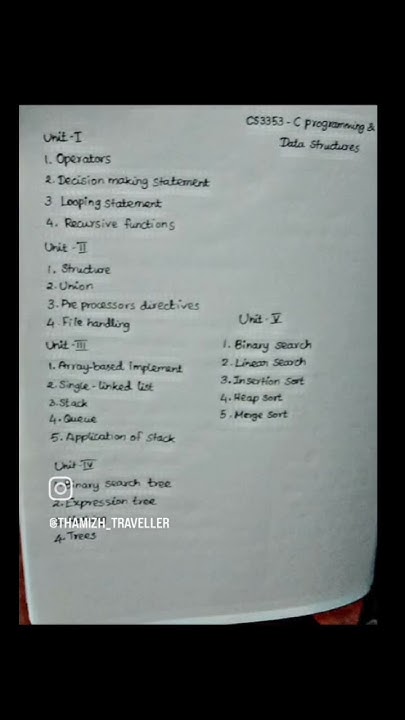 CS3353 - C programming &
Data Structures
Unit - I
1. Operators
2. Decision making statement
3 Looping statement
4. Recursive functions
Unit - II
1. Structure
2. Union
3. Pre processors directives
4. File handling
Unit - III
1. Array-based implement
2. Single-linked list
3. Stack
4. Queue
5. Application of stack
Unit - IV
Binary search tree
2. Expression tree
@THAMIZH_TRAVELLER
4. Trees
Unit - V
1. Binary search
2. Linear search
3. Insertion sort
4. Heap sort
5. Merge sort